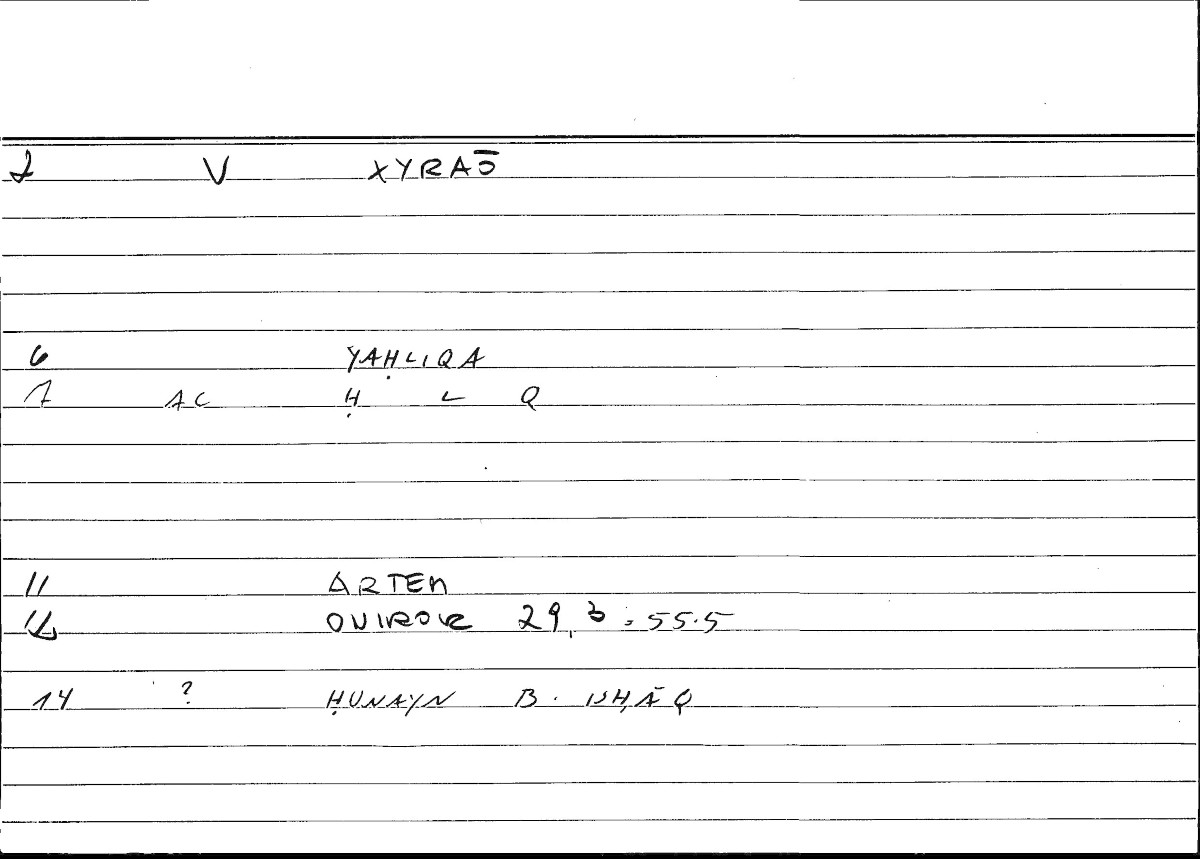 2 V XYRAŌ
6 YAḤLIQA
7 AC Ḥ L Q
11 ARTEM
12 ONIROK 29, 3 : 55.5
14 ? ḤUNAYN B. ISḤĀQ